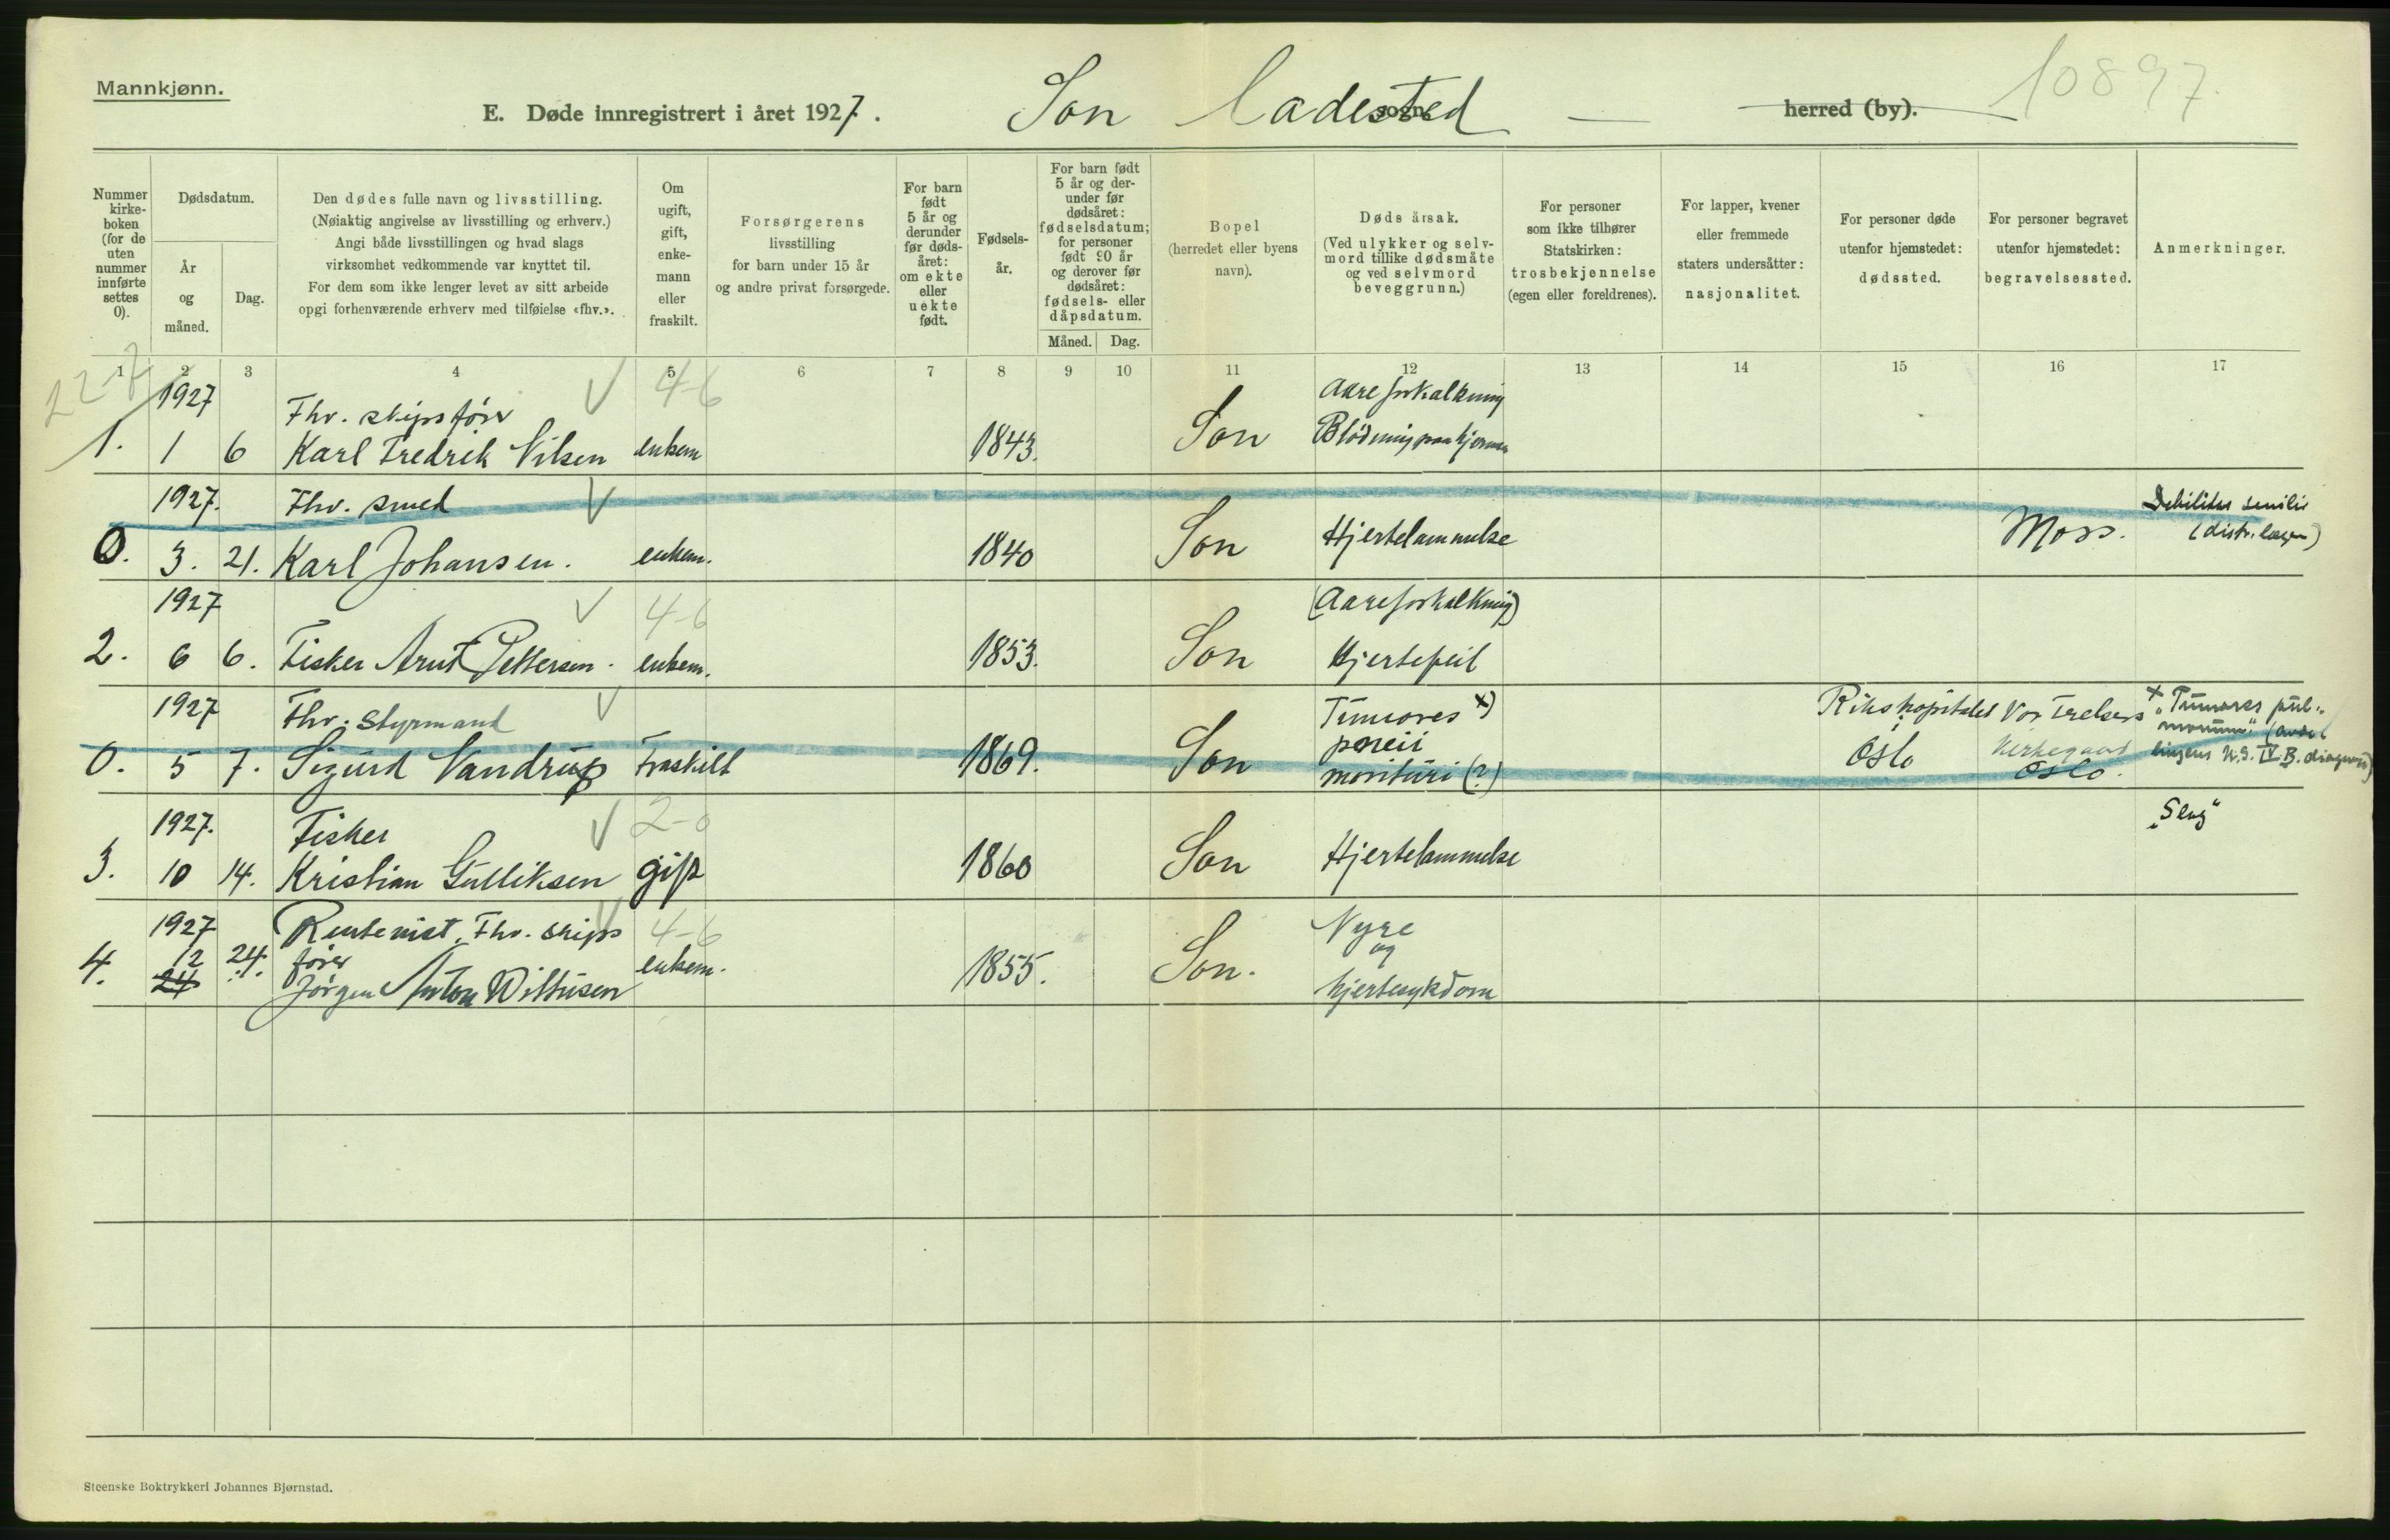 Mannkjønn.
E. Døde innregistrert i året 1927.
Son Ladested
sogn
herred (by).
10897.
Nummer kirke-boken (for de uten nummer innførte settes 0).
Dødsdatum.
År og måned.
Dag.
Den dødes fulle navn og livsstilling.
(Nøiaktig angivelse av livsstilling og erhverv.)
Angi både livsstillingen og hvad slags
virksomhet vedkommende var knyttet til.
For dem som ikke lenger levet av sitt arbeide
opgi forhenværende erhverv med tilføielse «fhv.».
Om ugift, gift, enke-mann eller fraskilt.
Forsørgerens
livsstilling
for barn under 15 år
og andre privat forsørgede.
For barn født 5 år og derunder før døds-året: om ekte eller uekte født.
Fødsels-år.
For barn født 5 år og der-under før dødsåret: fødselsdatum; for personer født 90 år og derover før dødsåret: fødsels- eller dåpsdatum.
Måned.
Dag.
Bopel
(herredet eller byens
navn).
Dødsårsak.
(Ved ulykker og selv-
mord tillike dødsmåte
og ved selvmord
beveggrunn.)
For personer
som ikke tilhører
Statskirken:
trosbekjennelse
(egen eller foreldrenes).
For lapper, kvener
eller fremmede
staters undersåtter:
nasjonalitet.
For personer døde
utenfor hjemstedet:
dødssted.
For personer begravet
utenfor hjemstedet:
begravelsessted.
Anmerkninger.
1 2 3 4 5 6 7 8 9 10 11 12 13 14 15 16 17
22-7
1927 Fhv. skipsfører 4-6 Aareforkalkning
1. 1 6 Karl Fredrik Nilsen enkem 1843. Son Blødning paa hjernen
1927. Fhv. smed Debilitas senilis
0. 3. 21. Karl Johansen. enkem. 1840 Son Hjertelammelse Moss. (distr. lægen)
1927 4-6 (Aareforkalkning)
2. 6 6. Fisker Arnt Pettersen. enkem. 1853. Son Hjertefeil
1927 Fhv. Styrmand Tumores x) Rikshospitalet Vor Frelsers x "Tumores pul-
monum" (avdel
0. 5 7. Sigurd Vandrup Fraskilt 1869. Son poneii morituri (?) Oslo Kirkegaard Oslo. lingens N.S. IV B. diagnose)
1927. Fisker 2-0 "Slag"
3. 10 14. Kristian Gulliksen gift 1860 Son Hjertelammelse
1927 Rentenist. Fhv. skips 4-6 Nyre
4. 12 24. fører enkem. 1855. Son. og
24 Jørgen Anton Wiltusen hjertesykdom
Steenske Boktrykkeri Johannes Bjørnstad.